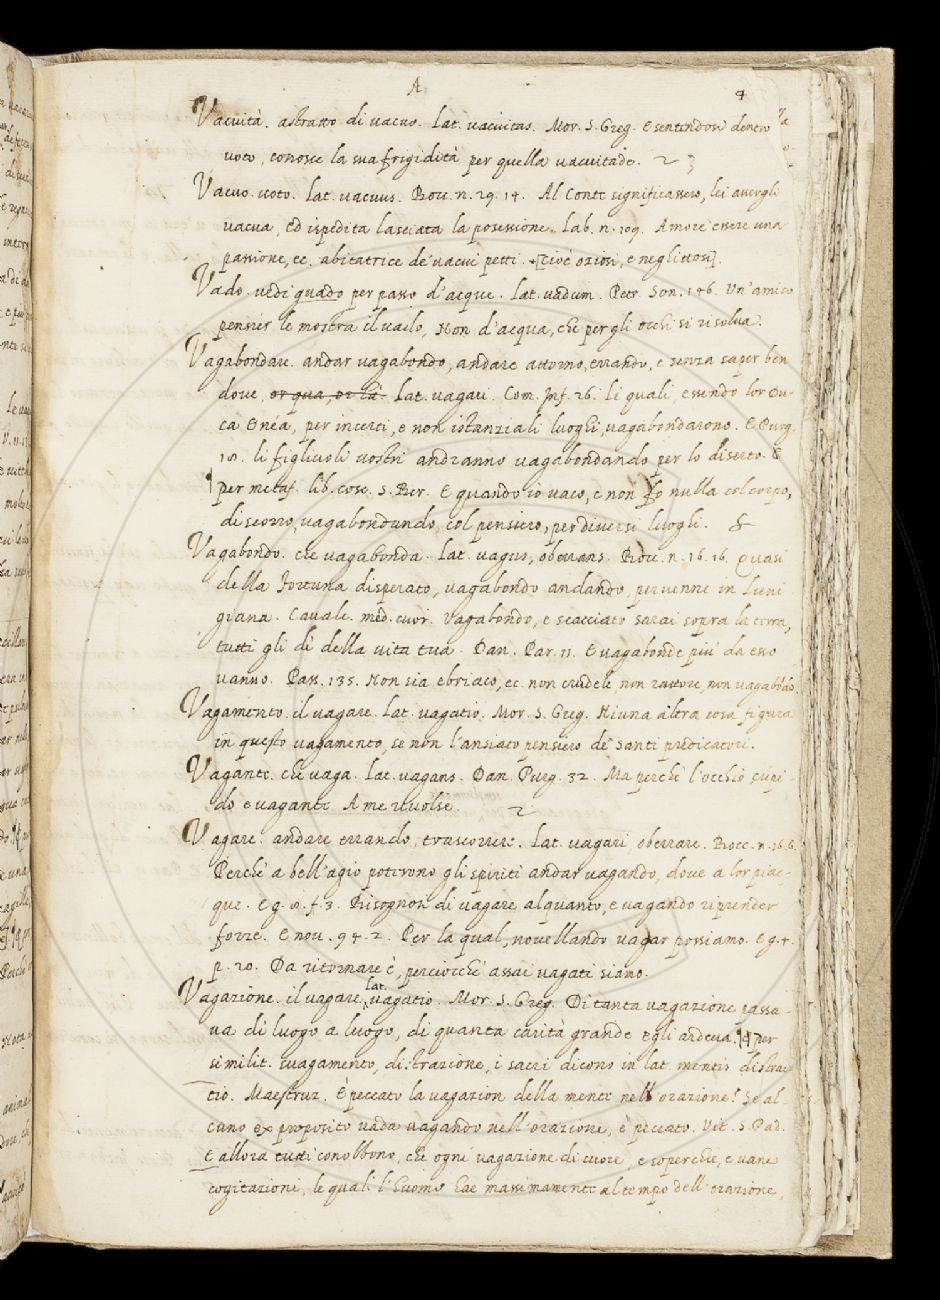 A 4
Vacuità. astratto di vacuo. Lat. vacuitas. Mor. S. Greg. E sentendosi dentro
voto, conosce la sua frigidità per quella vacuitade. 2
Vacuo. voto. Lat. vacuus. Bocc. n. 29. 14. Al Conte significassero, lei avergli
vacua, ed ispedita lasciata la posessione. Lab. n. 109. Amore è essere una
passione, ec. abitatrice de' vacui petti. [cioè oziosi, e neglittosi].
Vado. vedi guado per passo d'acque. Lat. vadum. Petr. Son. 146. Un'amico
pensier le mostra il vado, Non d'acqua, che per gli occhi si risolva.
Vagabondare. andar vagabondo, andare attorno, errando, e senza saper ben
dove, or qua, or là. Lat. vagati. Com. Inf. 26. li quali, essendo lor Du-
ca Enéa, per incerti, e non istanziali luoghi, vagabondarono. E Purg.
18. li figliuoli vostri andranno vagabondando per lo diserto. E
per metaf. lib. cose. S. Ber. E quando io vaco, e non fo nulla col corpo,
discorro, vagabondundo, col pensiero, per diversi luogli. &
Vagabondo. che vagabonda. Lat. vagus, oberrans. Bocc. n. 16. 16. Quasi
della fortuna disperato, vagabondo andando, pervenne in Luni
giana. Cavalc. med. cuor. Vagabondo, e scacciato sarai sopra la terra,
tutti gli dì della vita tua. Dan. Par. 11. E vagabonde più da esso
vanno. Pass. 135. Non sia ebriaco, ec. non crudele non rattore, non vagabōdo.
Vagamento. il vagare. Lat. vagatio. Mor. S. Greg. Niuna altra cosa figura
in questo vagamento, se non l'ansiato pensiero de' Santi predicatori.
Vagante. che vaga. Lat. vagans. Dan. Purg. 32. Ma perchè l'occhio cupi-
do e vagante A me rivolse. 2
Vagare. andare errando, trascorrere. Lat. vagari oberrare. Bocc. n. 16. 6.
Perchè a bell'agio poterono gli spiriti andar vagando, dove a lor piac-
que. E g. 8. f. 3. Bisognoti di vagare alquanto, e vagando riprender
forze. E nov. 94. 2. Per la qual, novellando vagar possiamo. E g. 4.
p. 20. Da ritornare è, perciocchè assai vagati siamo.
Vagazione. il vagare, Lat. vagatio. Mor. S. Greg. Di tanta vagazione passa-
va di luogo a luogo, di quanta carità grande egli ardeva. ¶ per
similit. svagamento, distrazione, i sacri dicono in lat. mentis distrac
tio. Maestruz. È peccato la vagazion della mente nell' orazione? Se al-
cuno ex proposito vada vagando nell'orazione, è peccato. Vit. S. Pad.
E allora tutti conobbono, che ogni vagazione di cuore, e soperchie, e vane
cogitazioni, le quali l'huomo hae massimamente al tempo dell'orazione,